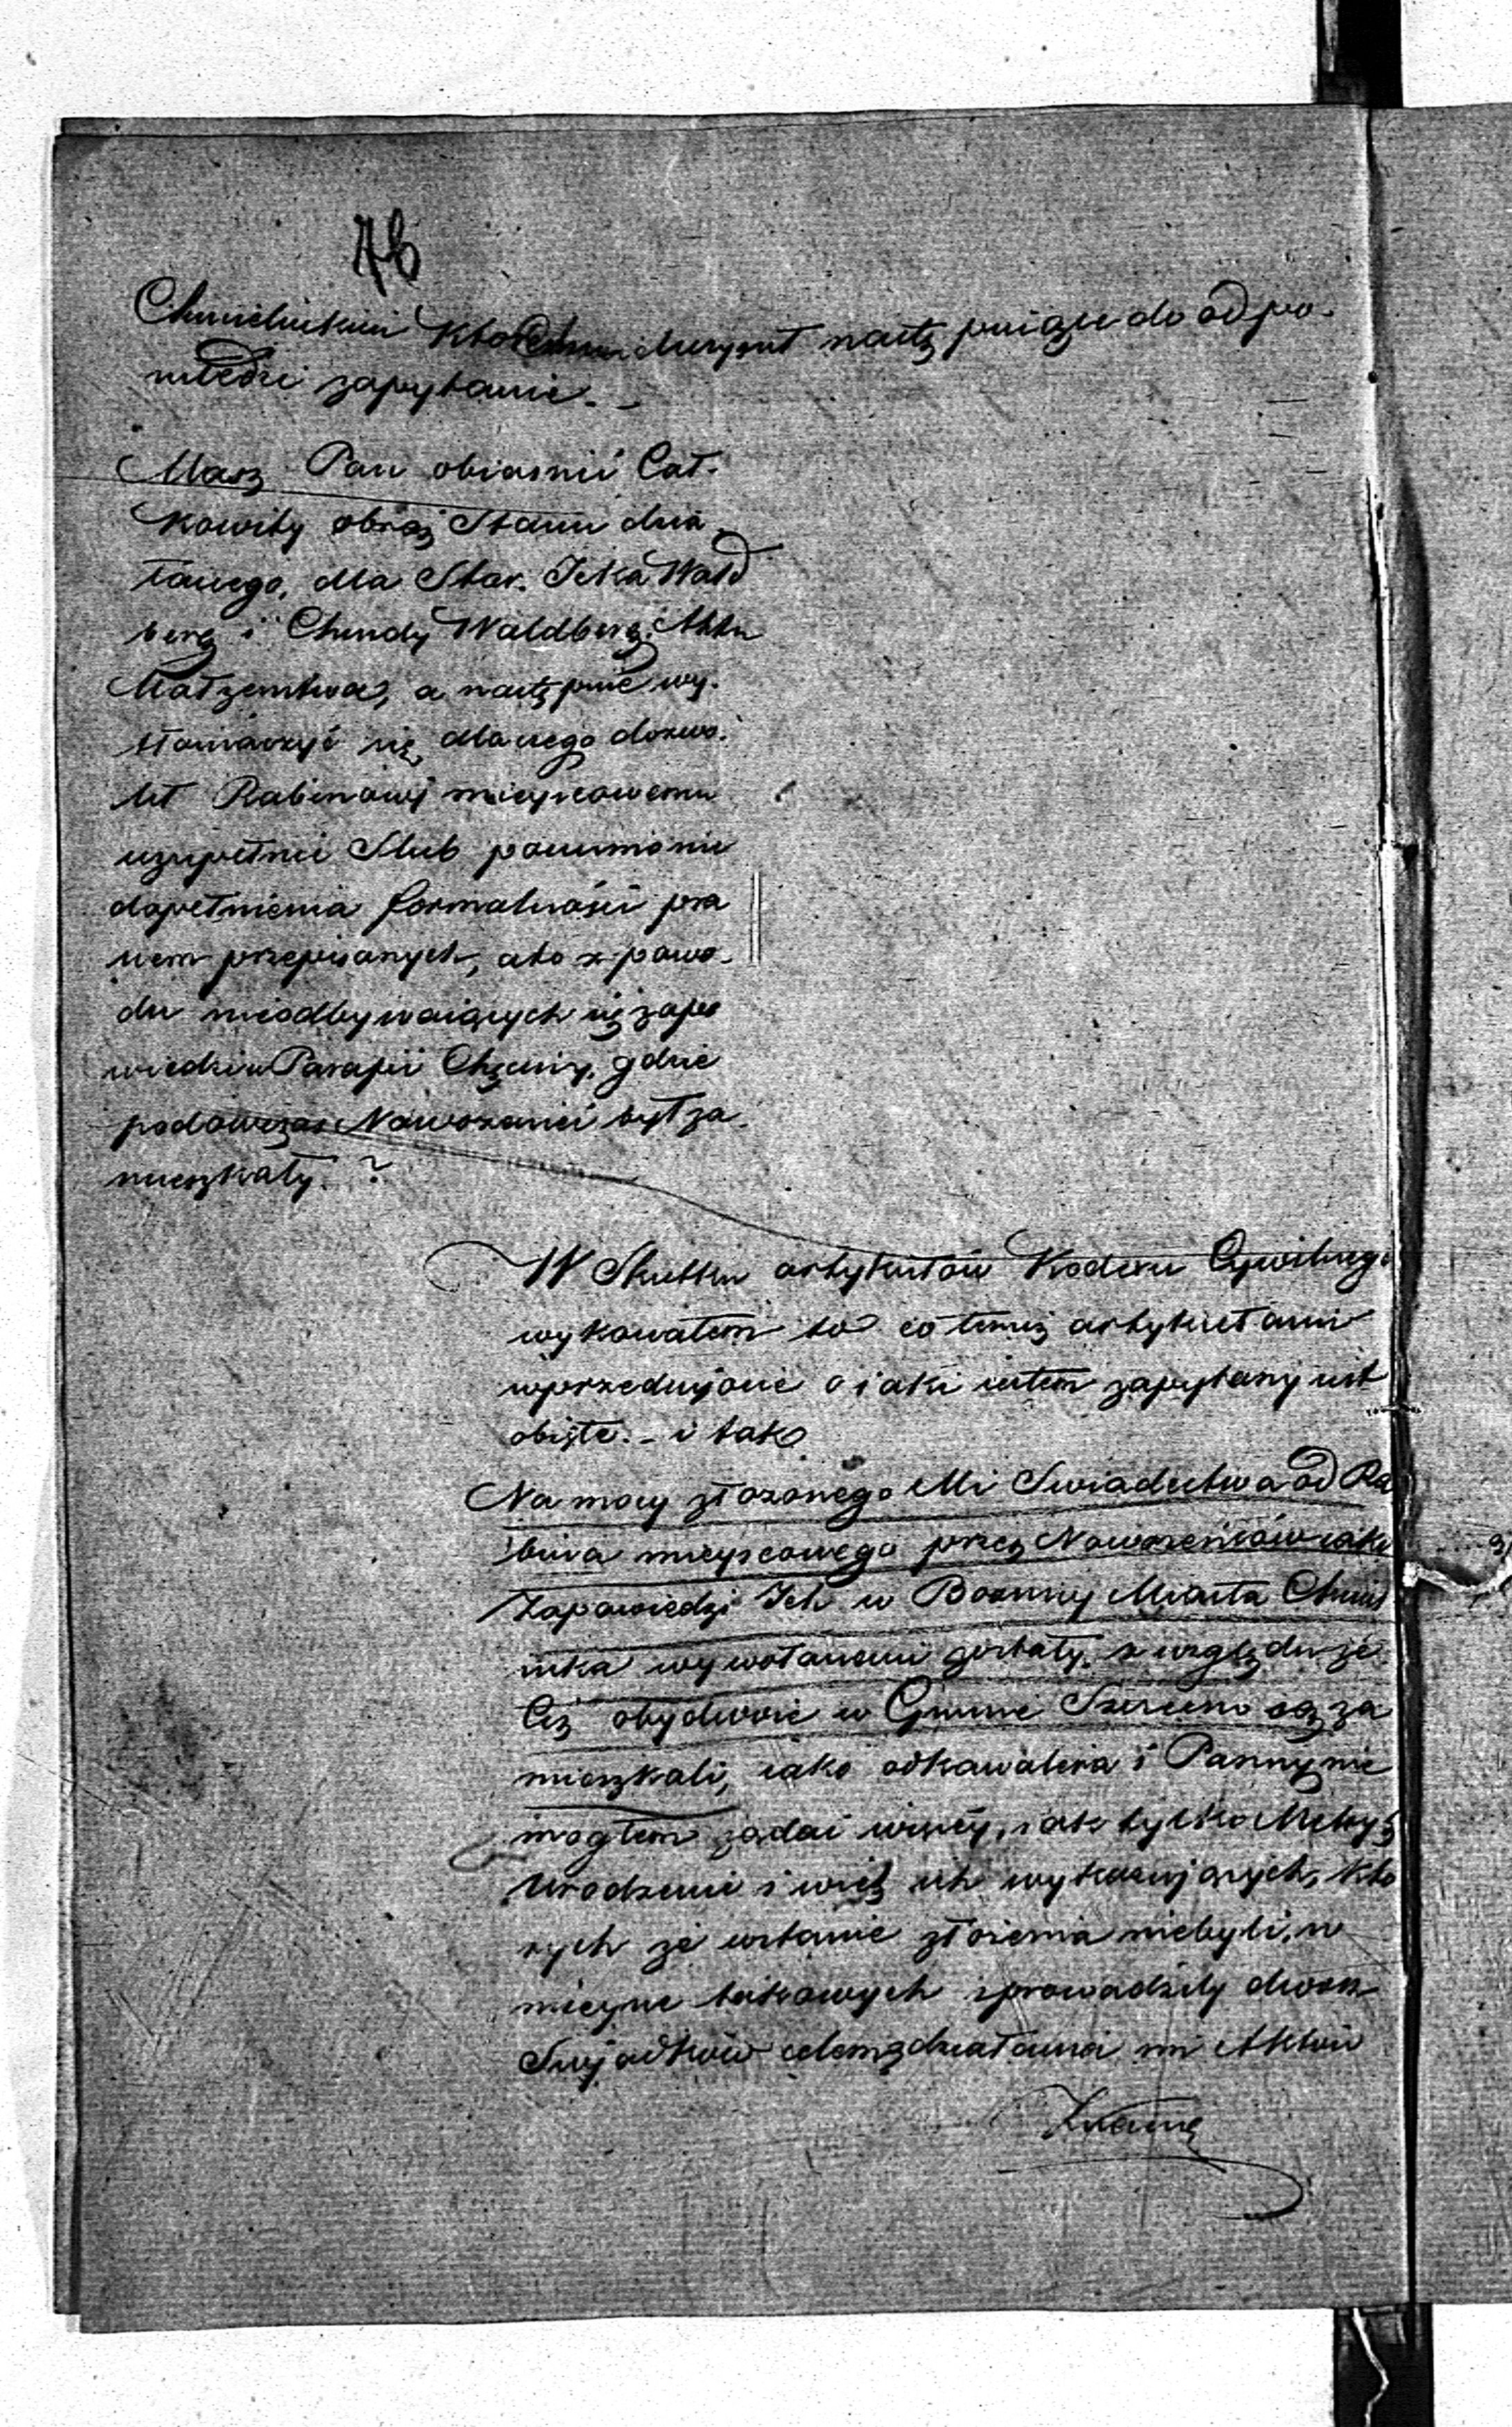 76
Chmielnickim któremu uczynił następuiące do odpo-
wiedzi zapytanie. -
Masz Pan obiasnić Cał-
kowity obraz Stanu dzia-
łanego, dla Star. Icka Wald
berg i Chendy Waldberg. Aktu
Małżenstwa, a następnie wy-
tłomaczyć się dlaczego dozwo-
lił Rabinowi mieyscowemu
uzupełnić Slub pomimo nie
dopełnienia formalności pra
wem przepisanych, a to z powo-
du nieodbywaiących się zapo
wiedzi w Parafii Chęciny, gdzie
podówczas Nowożeniec był za-
mieszkały. ?
W Skutku artykułów Kodexu Cywilnego
wykonałem to co temiż artykułami
uprzednio o iakie iestem zapytany iest
obięte. - i tak
Na mocy złożonego Mi Swiadectwa od Ra
bina mieyscowego przez Nowożeńców iako
Zapowiedzi Ich w Boznicy Miasta Chmiel
nika wywołanemi zostały, z względu że
Ciż obydwoie w Gminie Szczecno są za
mieszkali, iako od kawalera i Panny nie
mogłem żądać więcéy, iak tylko Metryk
Urodzenia i wiek ich wykazuiących, któ
rych że wstanie złożenia niebyli, w
mieysce takowych sprowadzili dwóch
Swiadków celem zdziałania mi Aktów
Znania